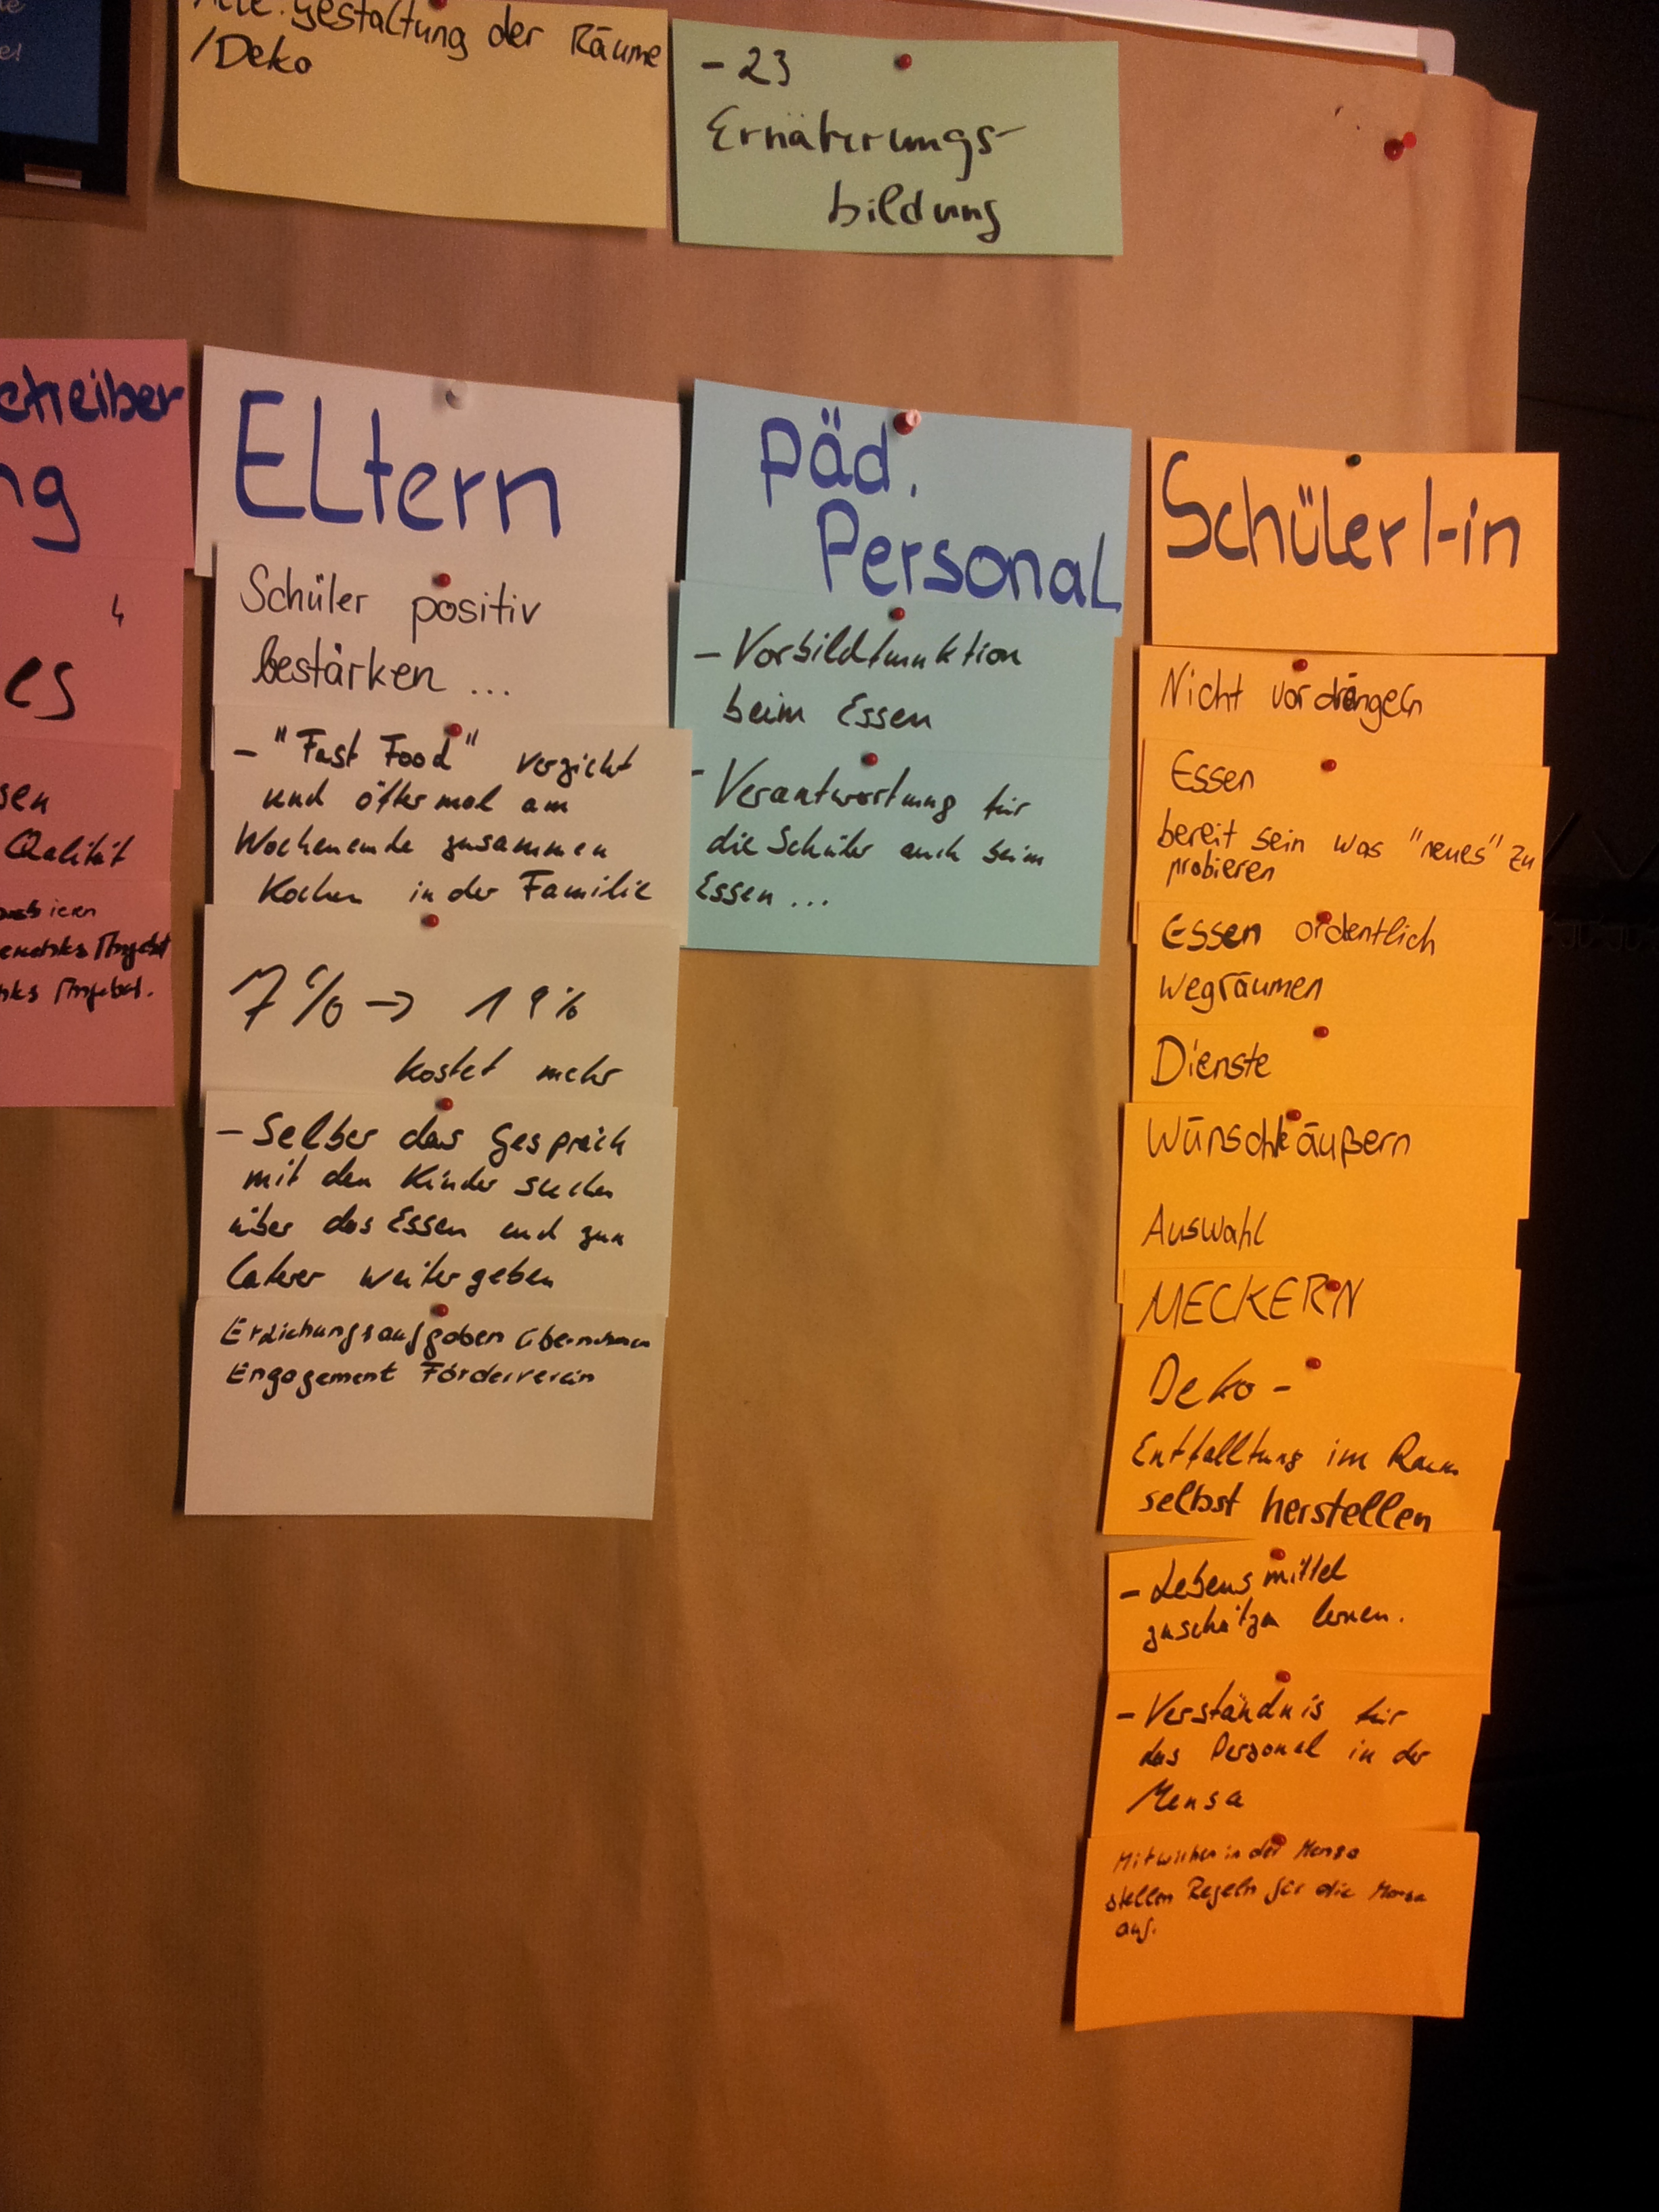 gestaltung der Räume
/Deko
- 23
Ernährungs-
bildung
ng
4
es
sen
Qalität
ELtern
Schüler positiv
bestärken ...
- "Fast Food" verzicht
und öfter mal am
Wochenende zusammen
Kochen in der Familie
7% → 19%
kostet mehr
- Selber das Gespräch
mit den Kinder suchen
über das Essen und zum
Caterer weitergeben
Erziehungsaufgaben übernehmen
Engagement Förderverein
päd.
Personal
- Vorbildfunktion
beim Essen
- Verantwortung für
die Schüler auch beim
Essen ...
Schüler/-in
Nicht vordrängeln
Essen
bereit sein was "neues" zu
probieren
Essen ordentlich
wegräumen
Dienste
Wünsche äußern
Auswahl
MECKERN
Deko -
Entfalltung im Raum
selbst herstellen
- Lebensmittel
zuschätzen lernen.
- Verständnis für
das Personal in der
Mensa
Mitwirken in der Mensa
stellen Regeln für die Mensa
auf.